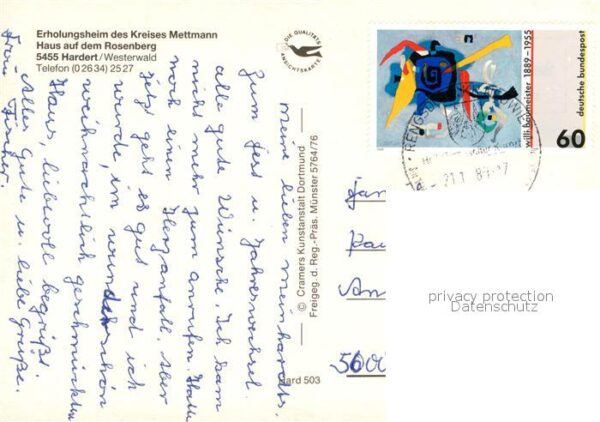 Erholungsheim des Kreises Mettmann
Haus auf dem Rosenberg
5455 Hardert/Westerwald
Telefon (0 26 34) 25 27
DIE QUALITÄTS
ANSICHTSKARTE
willi baumeister 1889-1955
deutsche bundespost
60
RENGSD
21.1
meine lieben
zum Fest u. Jahreswechsel
alle gute Wünsche. Ich kam
nicht mehr zum anrufen. Hatte
noch ein Herzanfall. Aber
jetzt geht es gut und ich
wurde, im wunderschön
weihnachtlich geschmückten
Haus, liebevoll begrüßt.
Alles Gute u. liebe Grüße.
© Cramers Kunstanstalt Dortmund
Freigeg. d. Reg.-Präs. Münster 5764/76
Hard 503
5600
privacy protection
Datenschutz